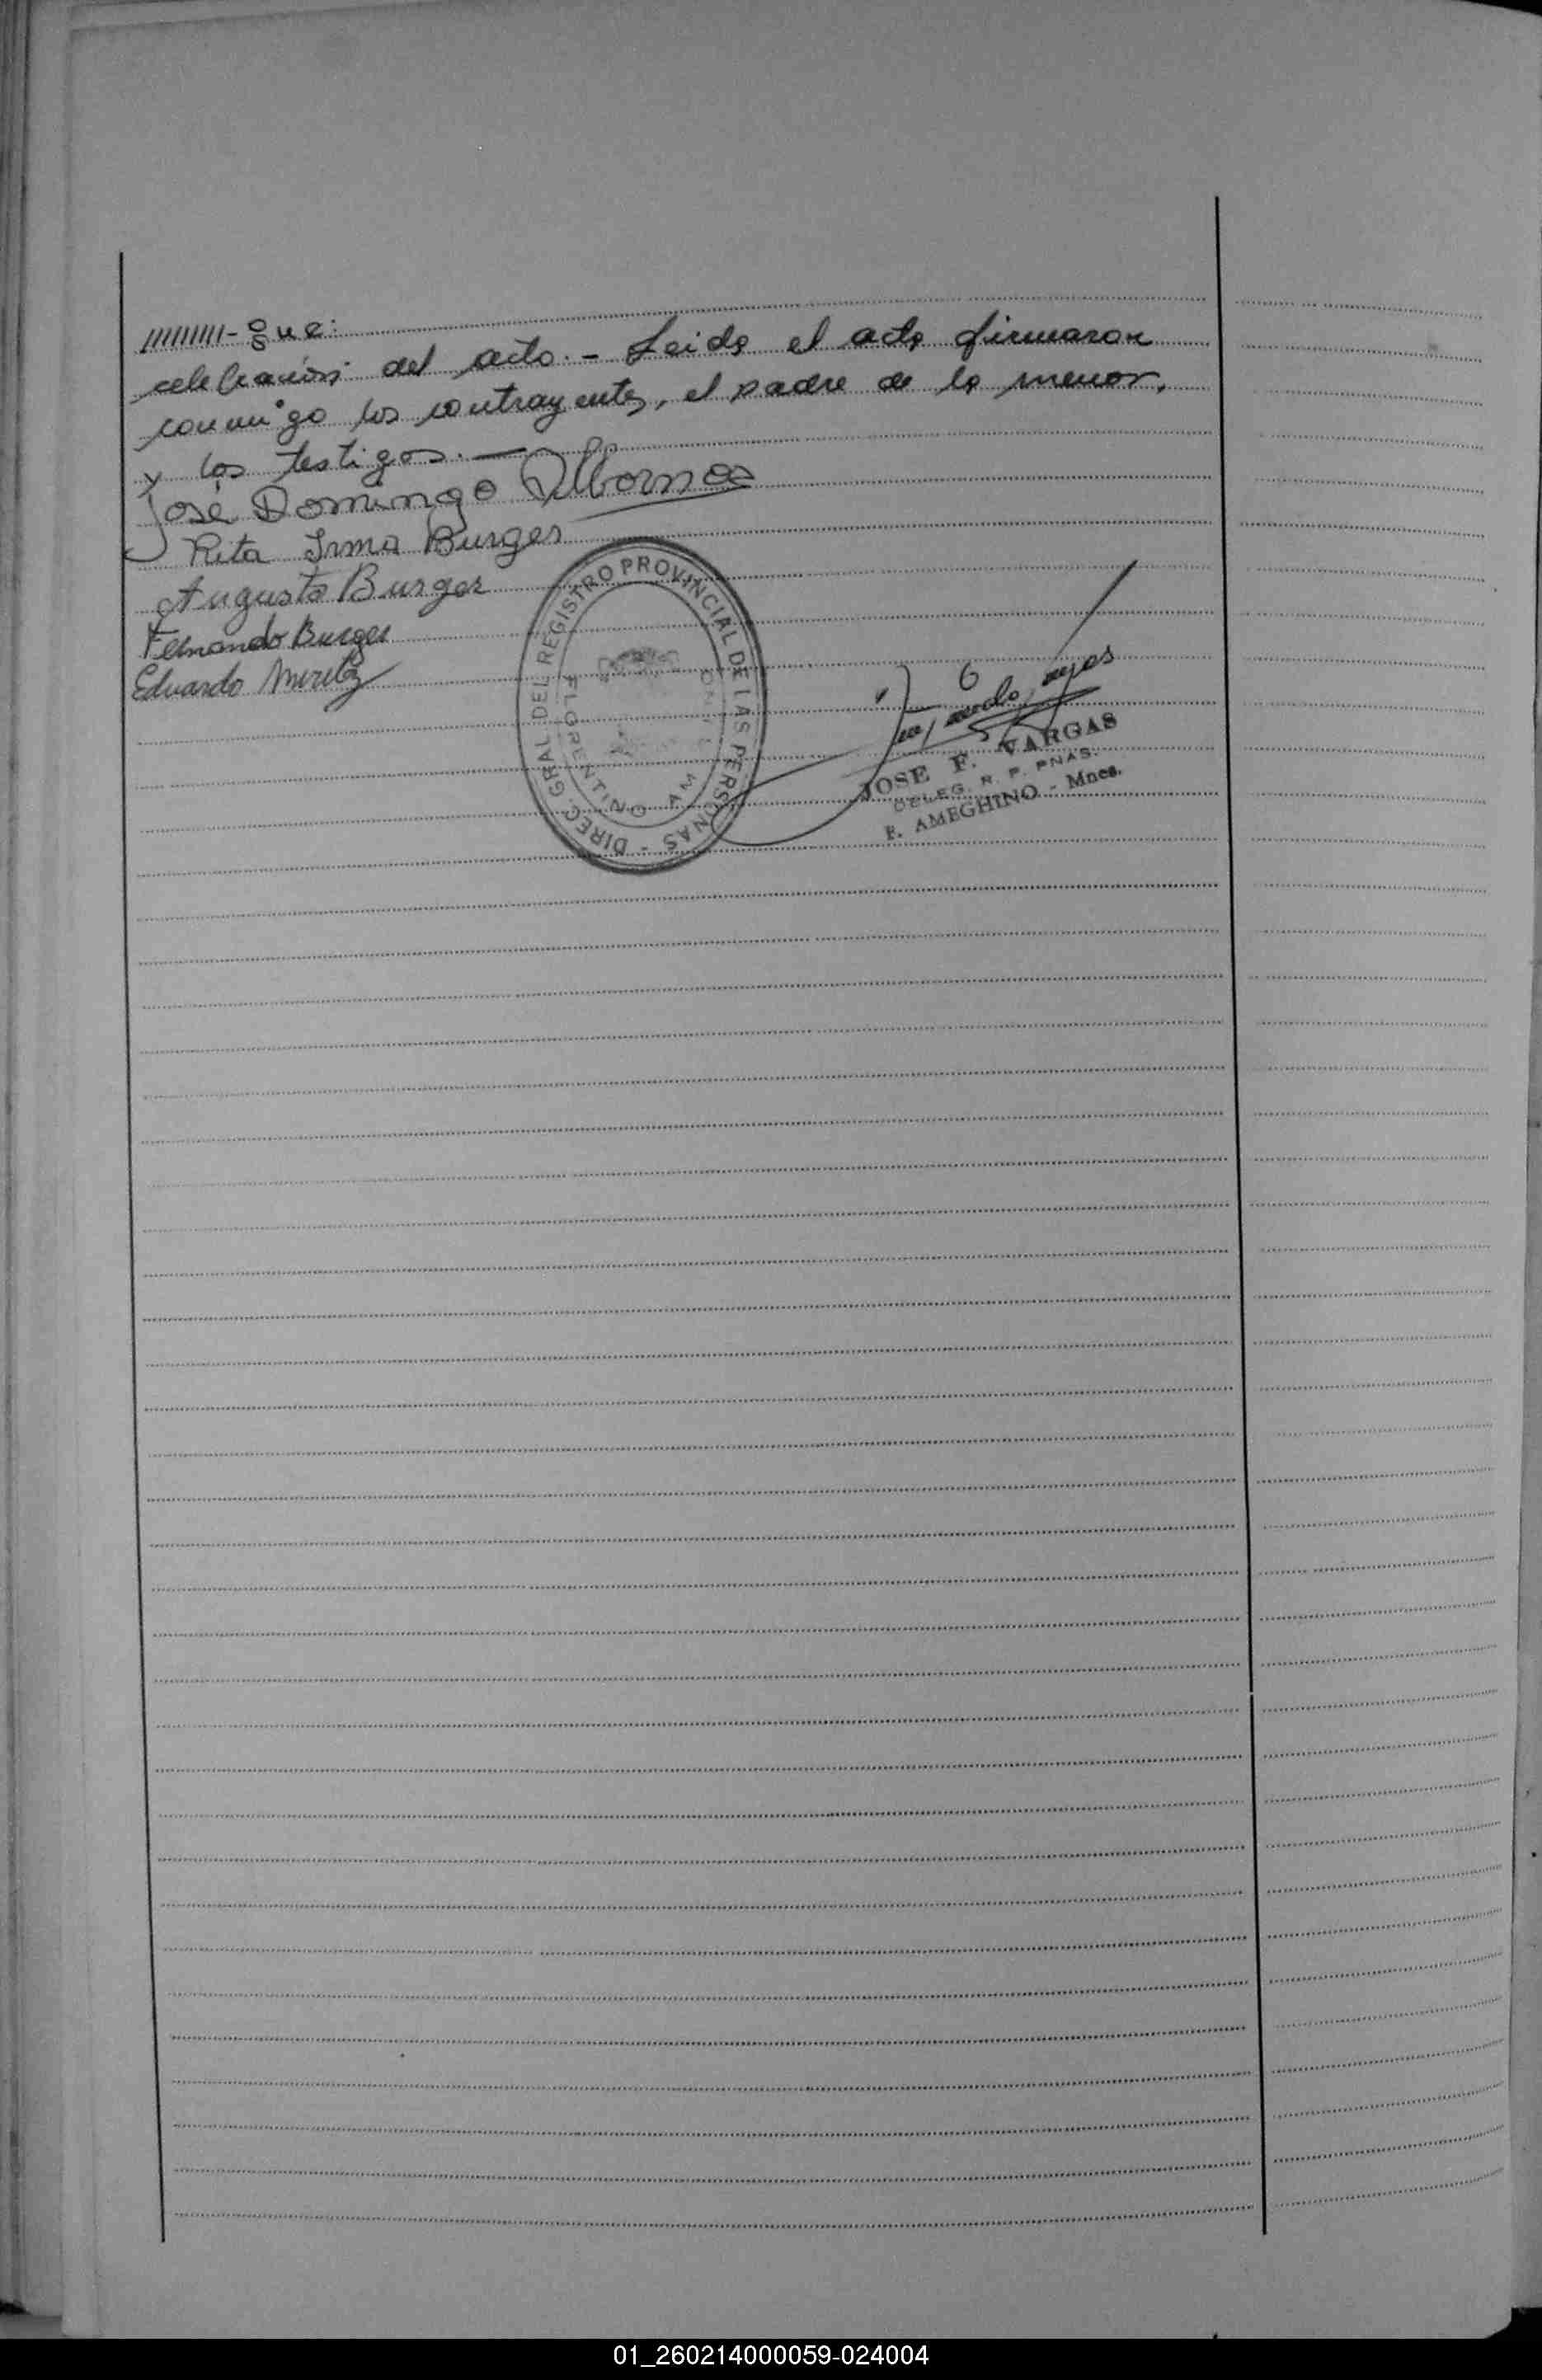 //////////-gue:
celebración del acto.- Leida el acta firmaron
conmigo los contrayentes, el padre de la menor,
y los testigos.—
José Domingo Albornoz
Rita Irma Burger
Augusto Burger
Fernando Burger
Eduardo
DIREC. GRAL. DEL REGISTRO PROVINCIAL DE LAS PERSONAS -
FLORENTINO AM
JOSE F. VARGAS
DELEG. R. P. PNAS.
F. AMEGHINO - Mnes.
01_260214000059-024004